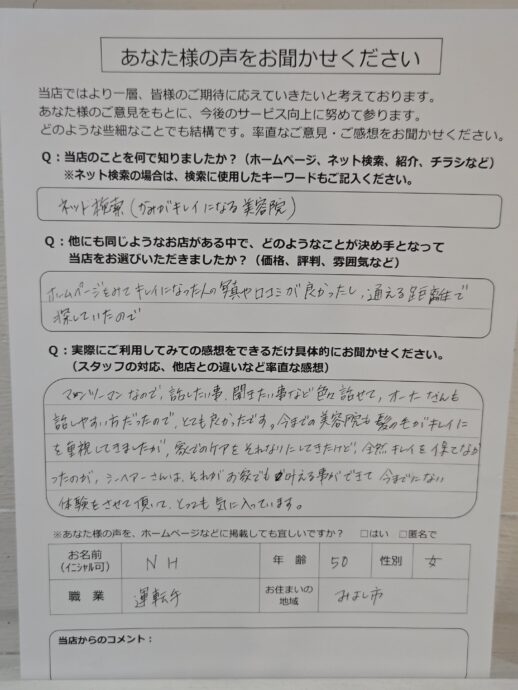 あなた様の声をお聞かせください
当店ではより一層、皆様のご期待に応えていきたいと考えております。
あなた様のご意見をもとに、今後のサービス向上に努めて参ります。
どのような些細なことでも結構です。率直なご意見・ご感想をお聞かせください。
Q：当店のことを何で知りましたか？（ホームページ、ネット検索、紹介、チラシなど）
※ネット検索の場合は、検索に使用したキーワードもご記入ください。
ネット検索(かみがキレイになる美容院)
Q：他にも同じようなお店がある中で、どのようなことが決め手となって
当店をお選びいただきましたか？（価格、評判、雰囲気など）
ホームページをみてキレイになった人の写真や口コミが良かったし、通える距離で
探していたので
Q：実際にご利用してみての感想をできるだけ具体的にお聞かせください。
（スタッフの対応、他店との違いなど率直な感想）
マンツーマンなので、話したい事、聞きたい事など色々話せて、オーナーさんも
話しやすい方だったので、とても良かったです。今までの美容院も髪の毛がキレイに
を重視してきましたが、家でのケアをそれなりにしてきたけど、全然キレイを保てなか
ったのが、シンヘアーさんは、それがお家でも叶える事ができて今までにない
体験をさせて頂いて、とっても気に入っています。
※あなた様の声を、ホームページなどに掲載しても宜しいですか？ □はい □匿名で
お名前 NH 年齢 50 性別 女
（イニシャル可）
職業 運転手 お住まいの地域 みよし市
当店からのコメント：